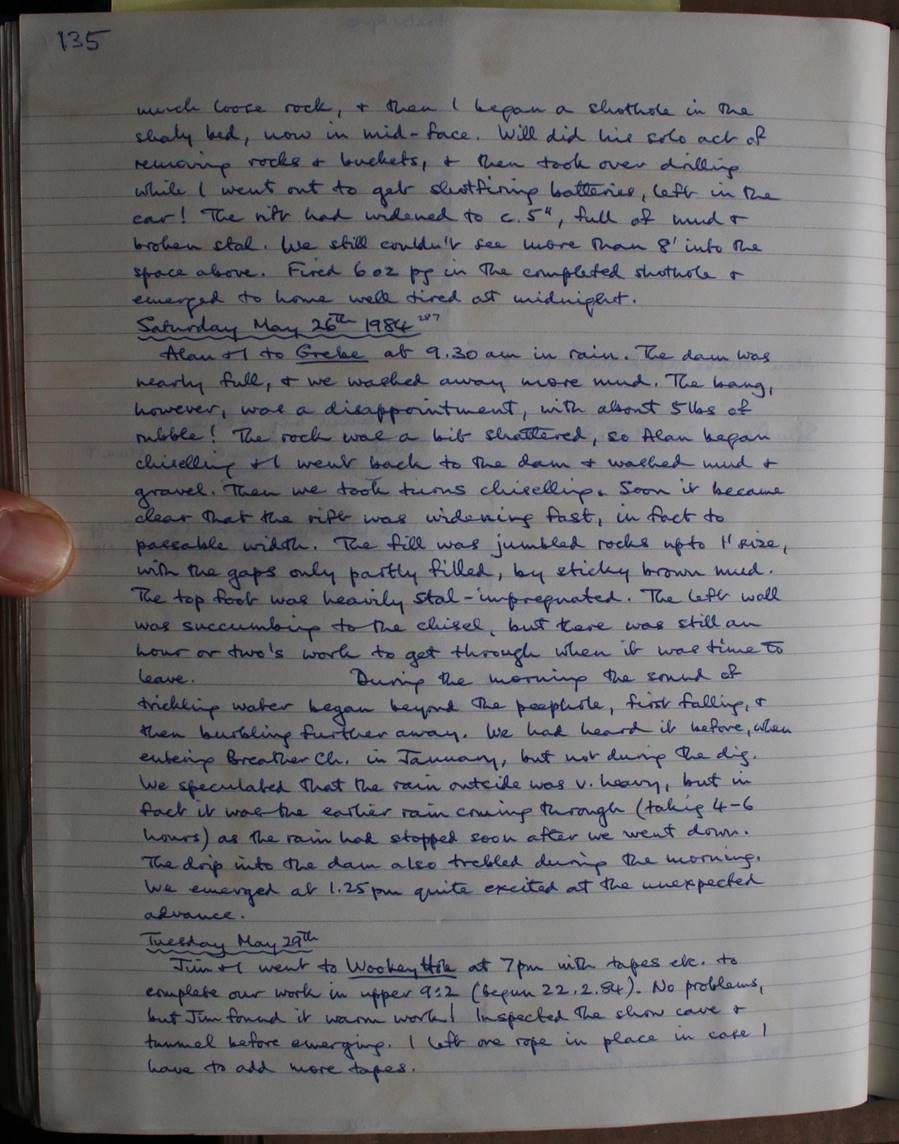 135
much loose rock, + then I began a shothole in the
shaly bed, now in mid-face. Will did his solo act of
removing rocks + buckets, + then took over drilling
while I went out to get shotfiring batteries, left in the
car! The rift had widened to c. 5", full of mud +
broken stal. We still couldn't see more than 8' into the
space above. Fired 6oz pg in the completed shothole +
emerged to home well tired at midnight.
Saturday May 26th 1984 287
Alan + I to Grebe at 9.30 am in rain. The dam was
nearly full, + we washed away more mud. The bang,
however, was a disappointment, with about 5 lbs of
rubble! The rock was a bit shattered, so Alan began
chiselling + I went back to the dam + washed mud +
gravel. Then we took turns chiselling. Soon it became
clear that the rift was widening fast, in fact to
passable width. The fill was jumbled rocks upto 1' size,
with the gaps only partly filled, by sticky brown mud.
The top foot was heavily stal-impregnated. The left wall
was succumbing to the chisel, but there was still an
hour or two's work to get through when it was time to
leave. During the morning the sound of
trickling water began beyond the peephole, first falling, +
then burbling further away. We had heard it before, when
entering Breather Ch. in January, but not during the dig.
We speculated that the rain outside was v. heavy, but in
fact it was the earlier rain coming through (taking 4-6
hours) as the rain had stopped soon after we went down.
The drip into the dam also trebled during the morning.
We emerged at 1.25pm quite excited at the unexpected
advance.
Tuesday May 29th
Jim + I went to Wookey Hole at 7pm with tapes etc. to
complete our work in upper 9:2 (begun 22.2.84). No problems,
but Jim found it warm work! Inspected the show cave +
tunnel before emerging. I left one rope in place in case I
have to add more tapes.